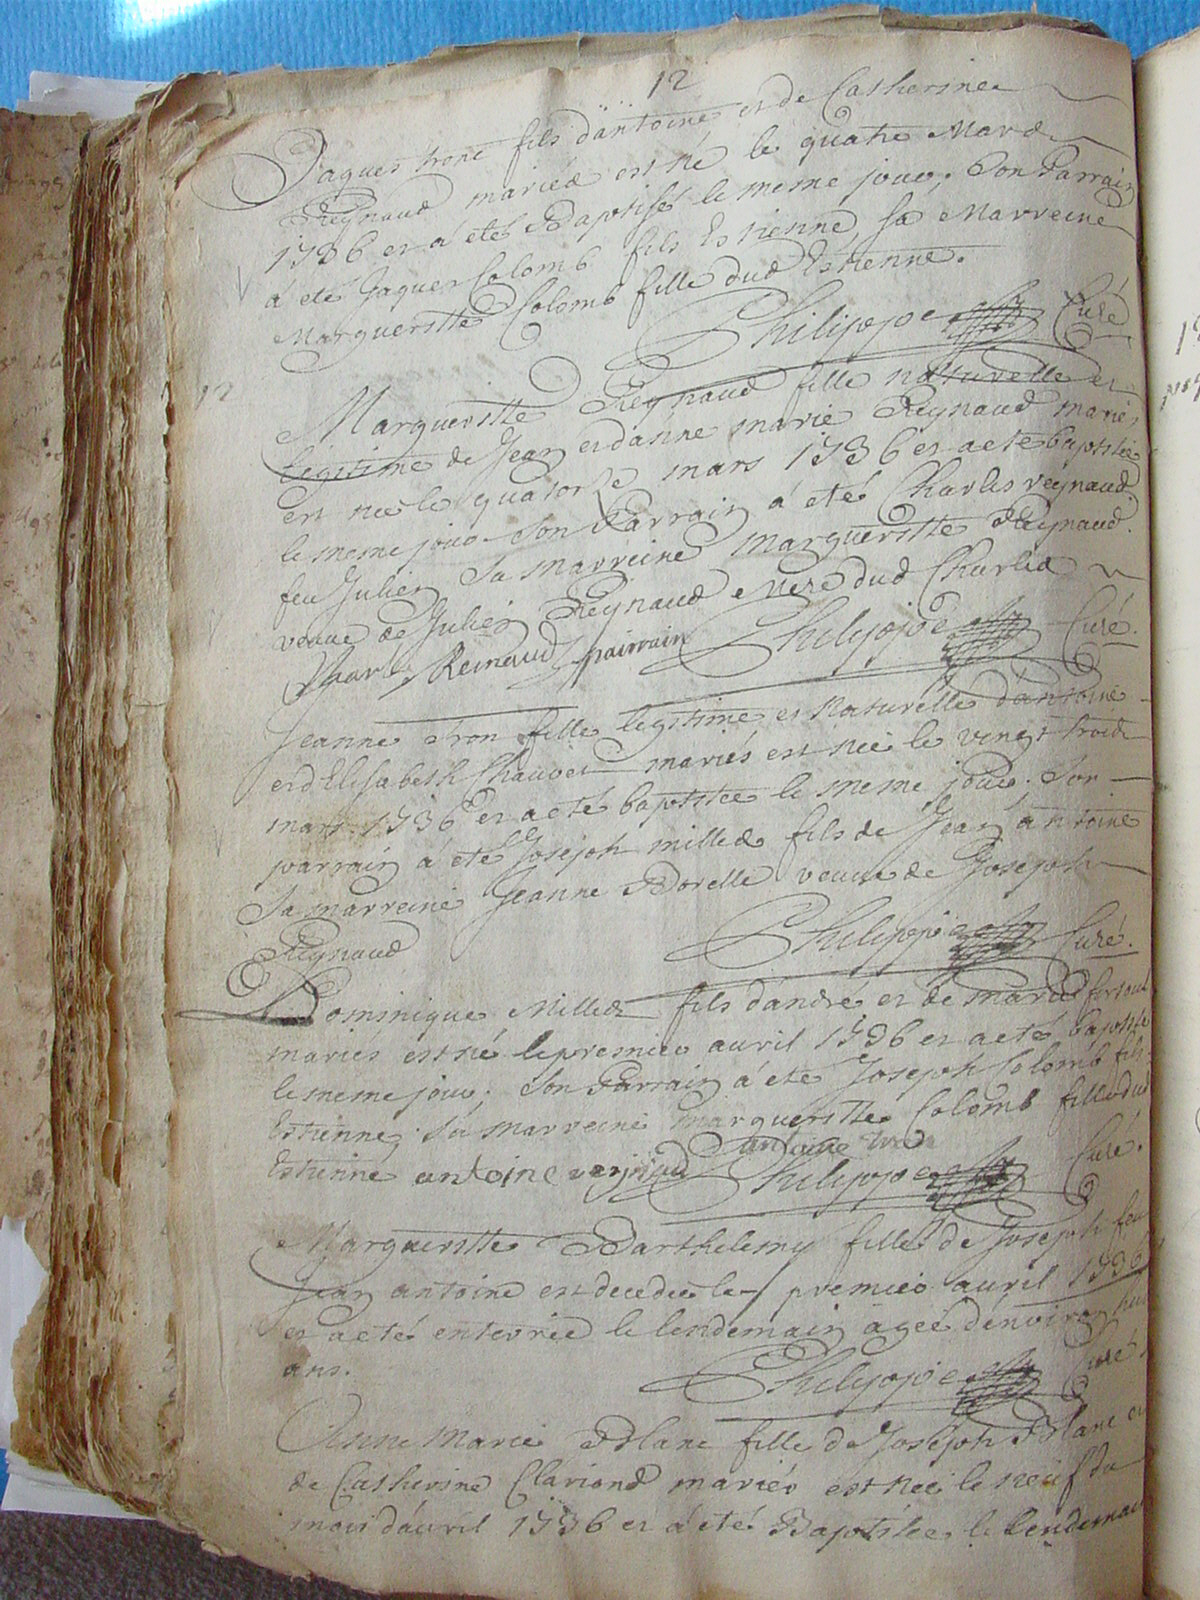 12
Jaques tronc fils d'antoine et de Catherine
Reynaud mariés est né le quatre Mars
1736 et a été Baptisé le meme jour, son Parrain
à été Jaques Colomb fils Estienne, sa Marreine
Margueritte Colomb fille dud Estienne.
Philippe Curé
12
Margueritte Reynaud fille naturelle et
legitime de Jean et d'anne marie Reynaud mariés
est née le quatorse mars 1736 et a eté baptisée
le meme jour son Parrain à eté Charles reynaud
feu Julien sa marreine Margueritte Reynaud
veuve de Julien Reynaud Mere dud Charles
Charles Reinaud pairrain Philippe Curé.
Jeanne tron fille legitime et Naturelle d'antoine
et d'Elisabeth Chauvet mariés est née le vingt trois
mars 1736 et a eté baptisée le meme jour. son
parrain a eté Joseph milles fils de Jean antoine
sa marreine Jeanne Borelle veuve de Joseph
Reynaud Philippe Curé.
Dominique Milles fils d'andré et de marie fortoul
mariés est né le premier avril 1736 et a eté baptisé
le meme jour, son Parrain à eté Joseph Colomb fils
Estienne, sa marreine margueritte Colomb fille dud
Estienne antoine antoine
Philippe Curé.
Margueritte Barthelemy fille de Joseph feu
Jean antoine est decedée le premier avril 1736
et a eté enterrée le lendemain agée d'environ huit
ans. Philippe Curé.
Anne Marie Blanc fille de Joseph Blanc et
de Catherine Clariond mariés est née le neuf du
mois d'avril 1736 et à eté Baptisée le lendemain